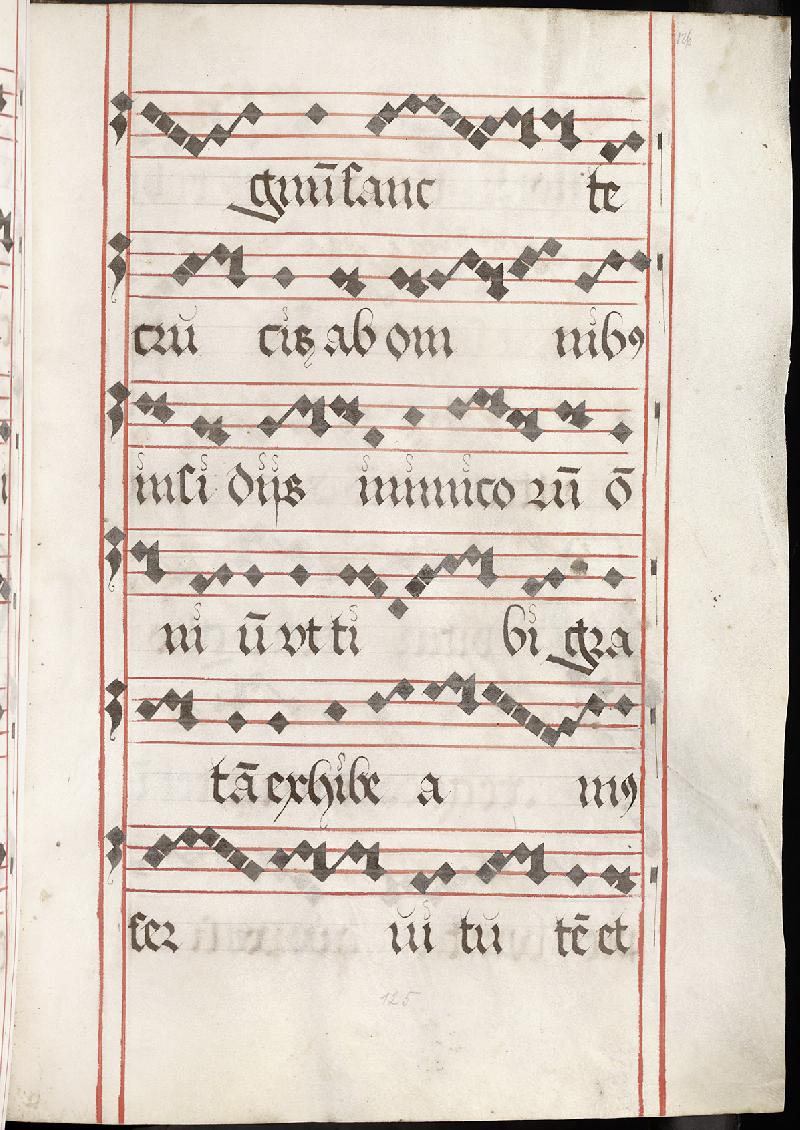 gnū sanc te
cru cis ab om nibꝰ
insi diis inimico rū ō
ni ū ut ti bi gra
tā exhibe a mꝰ
ser ui tu tē et
125